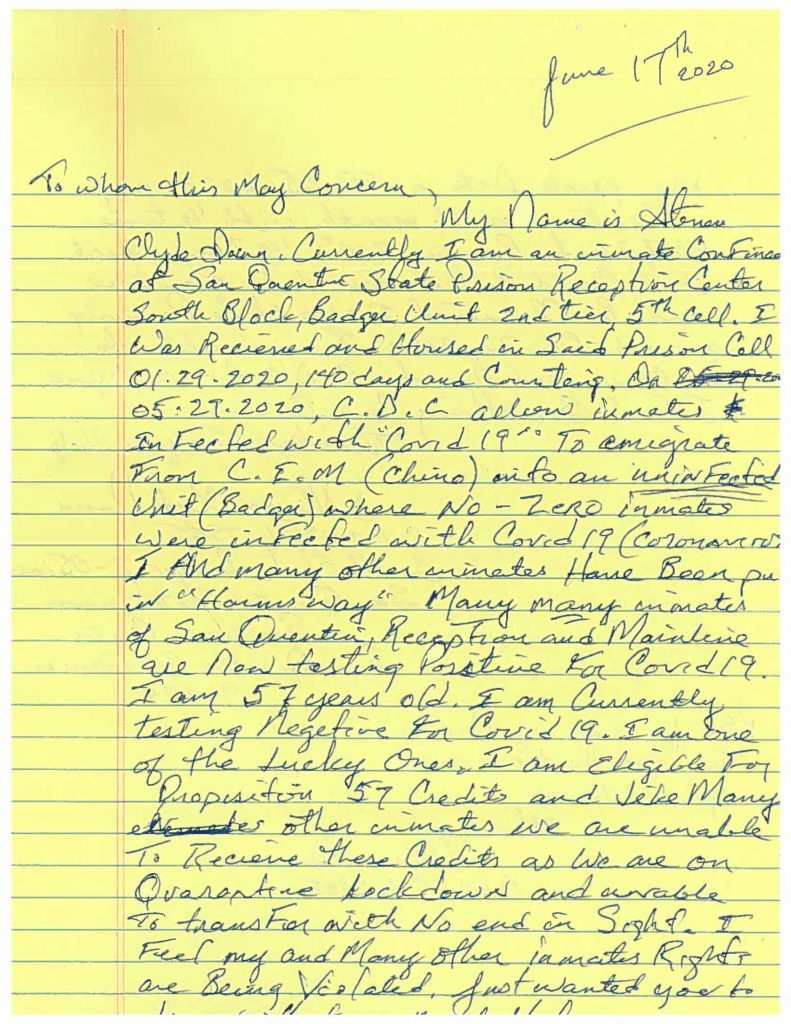 June 17th 2020
To whom this May Concern,
My Name is Steven
Clyde Dunn. Currently I am an inmate Confined
at San Quentin State Prison Reception Center
South Block, Badger Unit 2nd tier, 5th cell. I
Was Recieved and Housed in Said Prison Cell
01.29.2020, 140 days and Counting. On
05.29.2020, C.D.C allow inmates
Infected with "Covid 19" To emigrate
From C.I.M (Chino) into an uninfected
Unit (Badger) where No - Zero inmates
were infected with Covid 19 (coronavirus
I And many other inmates Have Been pu
in "Harms way" Many many inmates
of San Quentin, Reception and Mainline
are Now testing Positive For Covid 19.
I am 57 years old. I am Currently
testing Negetive For Covid 19. I am one
of the Lucky Ones. I am Eligible For
Proposition 57 Credits and Like Many
other inmates we are unable
To Recieve these Credits as we are on
Quarantine Lockdown and unable
To transfer with No end in Sight. I
Feel my and Many other inmates Rights
are Being Violated. Just wanted you to